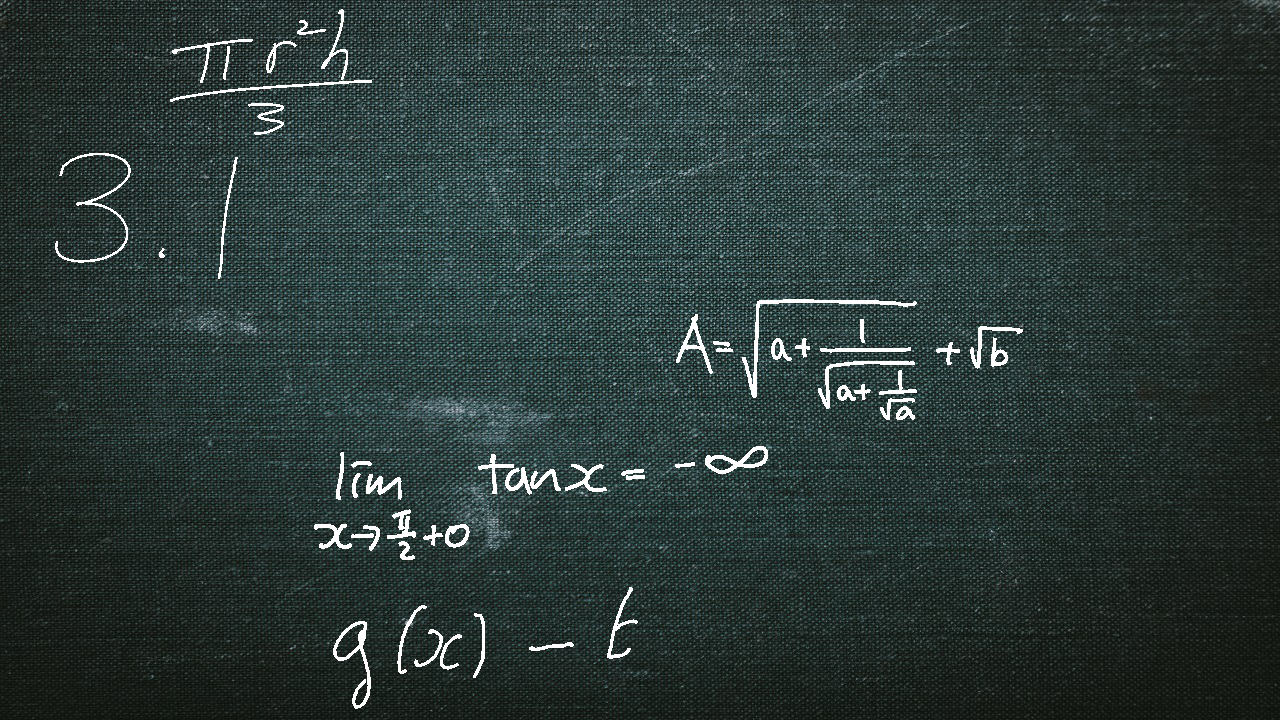 \frac{\pi r^2 h}{3}
3.1
A = \sqrt{a + \frac{1}{\sqrt{a + \frac{1}{\sqrt{a}}}}} + \sqrt{b}
\lim_{x \to \frac{\pi}{2} + 0} \tan x = -\infty
g(x) - t